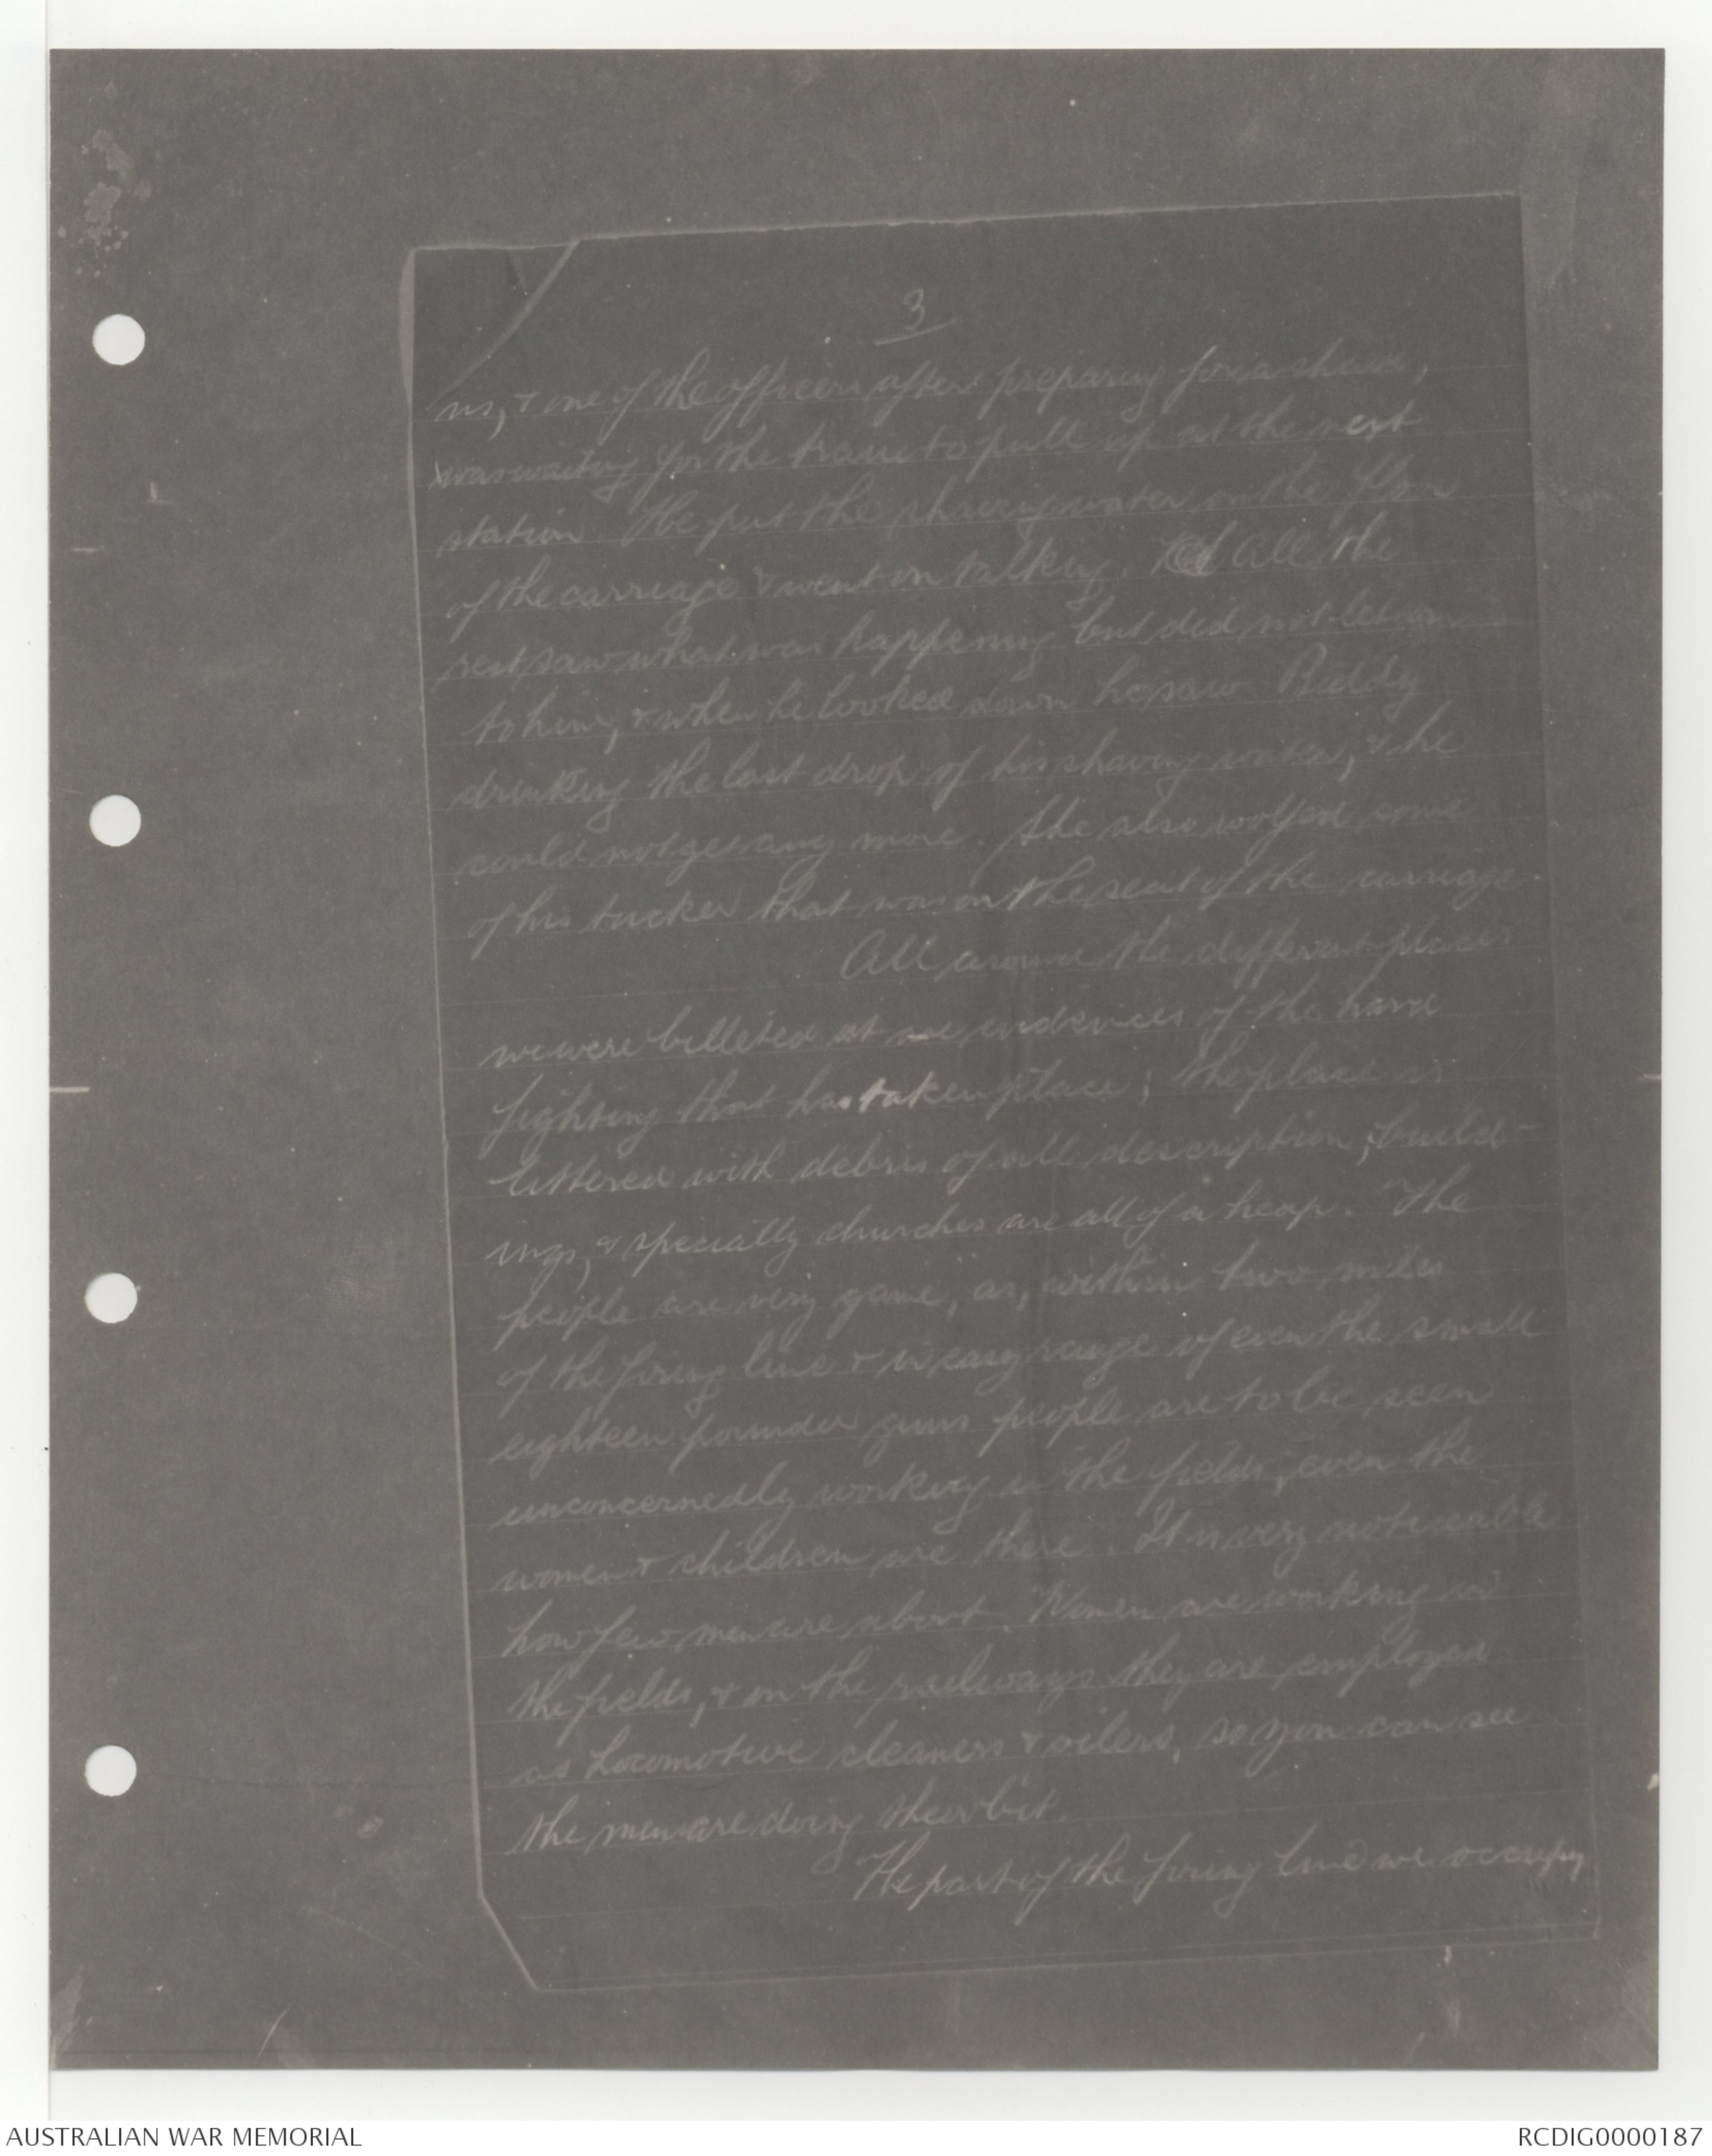 3
us, & one of the officers after preparing for a shave,
was waiting for the train to pull up at the next
station. He put the shaving water on the floor
of the carriage & went on talking. All the
rest saw what was happening but did not let on
to him, & when he looked down he saw Biddy
drinking the last drop of his shaving water, & he
could not get any more. She also wolfed some
of his tucker that was on the seat of the carriage.
All around the different places
we were billeted at are evidences of the hard
fighting that has taken place; the place is
littered with debris of all description, build-
ings, & specially churches are all of a heap. The
people are very game, as, within two miles
of the firing line & in easy range of even the small
eighteen pounder guns people are to be seen
unconcernedly working in the fields, even the
women & children are there. It is very noticeable
how few men are about. Women are working in
the fields, & on the railways they are employed
as Locomotive cleaners & oilers, so you can see
the men are doing their bit.
The part of the firing line we occupy
AUSTRALIAN WAR MEMORIAL
RCDIG0000187